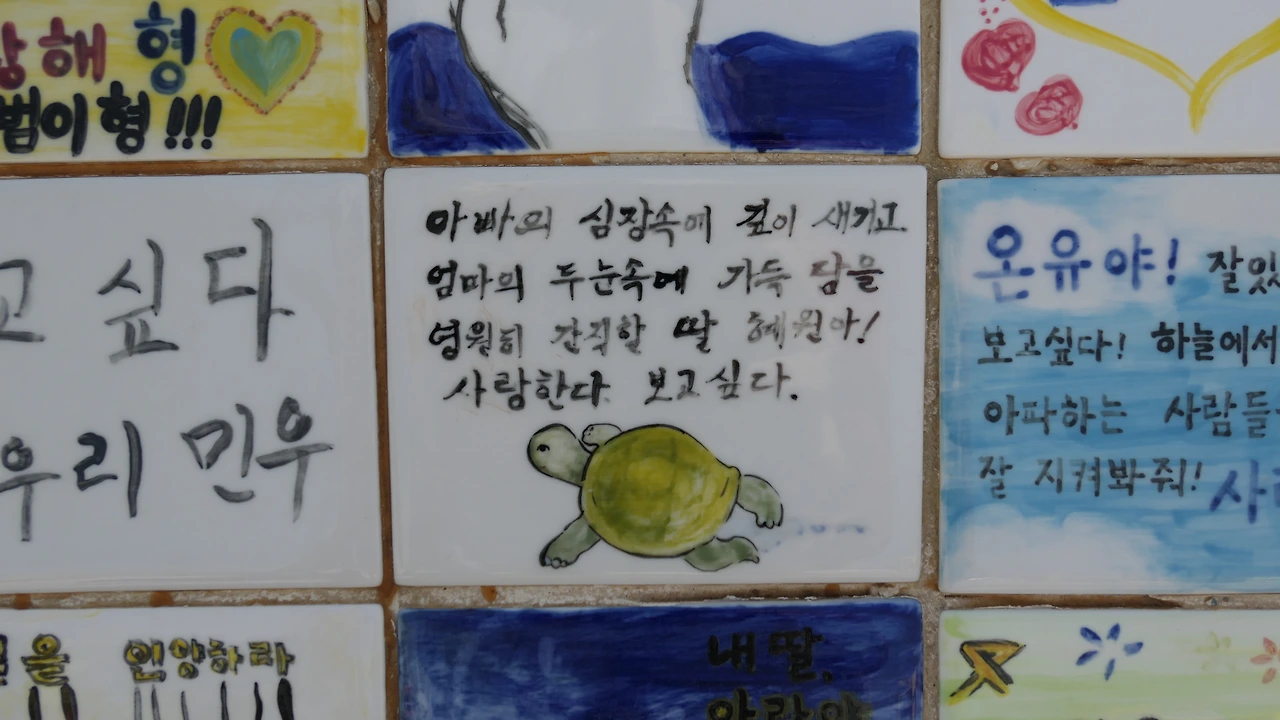 해 형
범이형!!!
고싶다
우리 민우
아빠의 심장속에 깊이 새기고
엄마의 두눈속에 가득 담을
영원히 간직할 딸 혜원아!
사랑한다 보고싶다.
온유야! 잘있
보고싶다! 하늘에서
아파하는 사람들
잘 지켜봐줘! 사
을
내 딸,